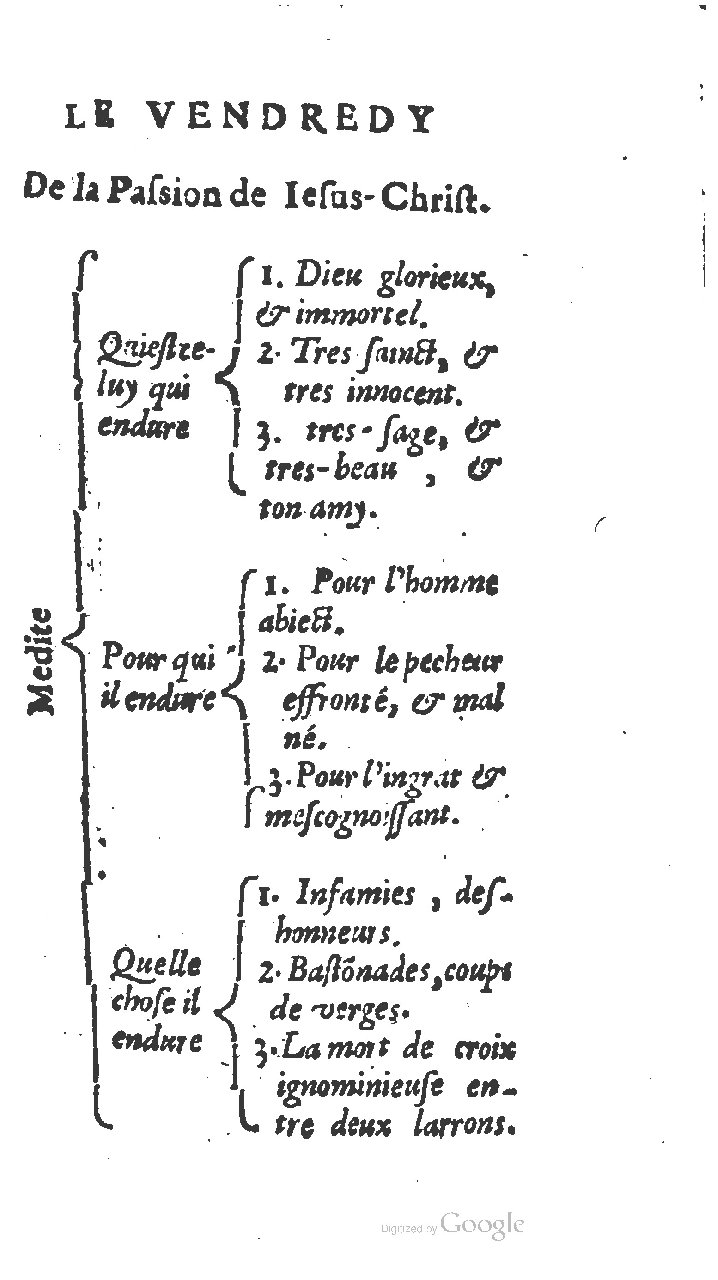 LE VENDREDY
De la Paſsion de Ieſus-Chriſt.
Medite
Qui eſt ce-
luy qui
endure
1. Dieu glorieux,
& immortel.
2. Tres ſainct, &
tres innocent.
3. tres-ſage, &
tres-beau , &
ton amy.
Pour qui
il endure
1. Pour l'homme
abiect.
2. Pour le pecheur
effronté, & mal
né.
3. Pour l'ingrat &
meſcognoiſſant.
Quelle
choſe il
endure
1. Infamies , deſ-
honneurs.
2. Baſtõnades, coups
de verges.
3. La mort de croix
ignominieuſe en-
tre deux larrons.
Digitized by Google